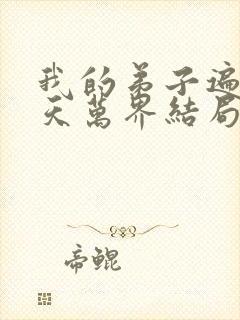 我的弟子遍
天萬界結局
帝鯤